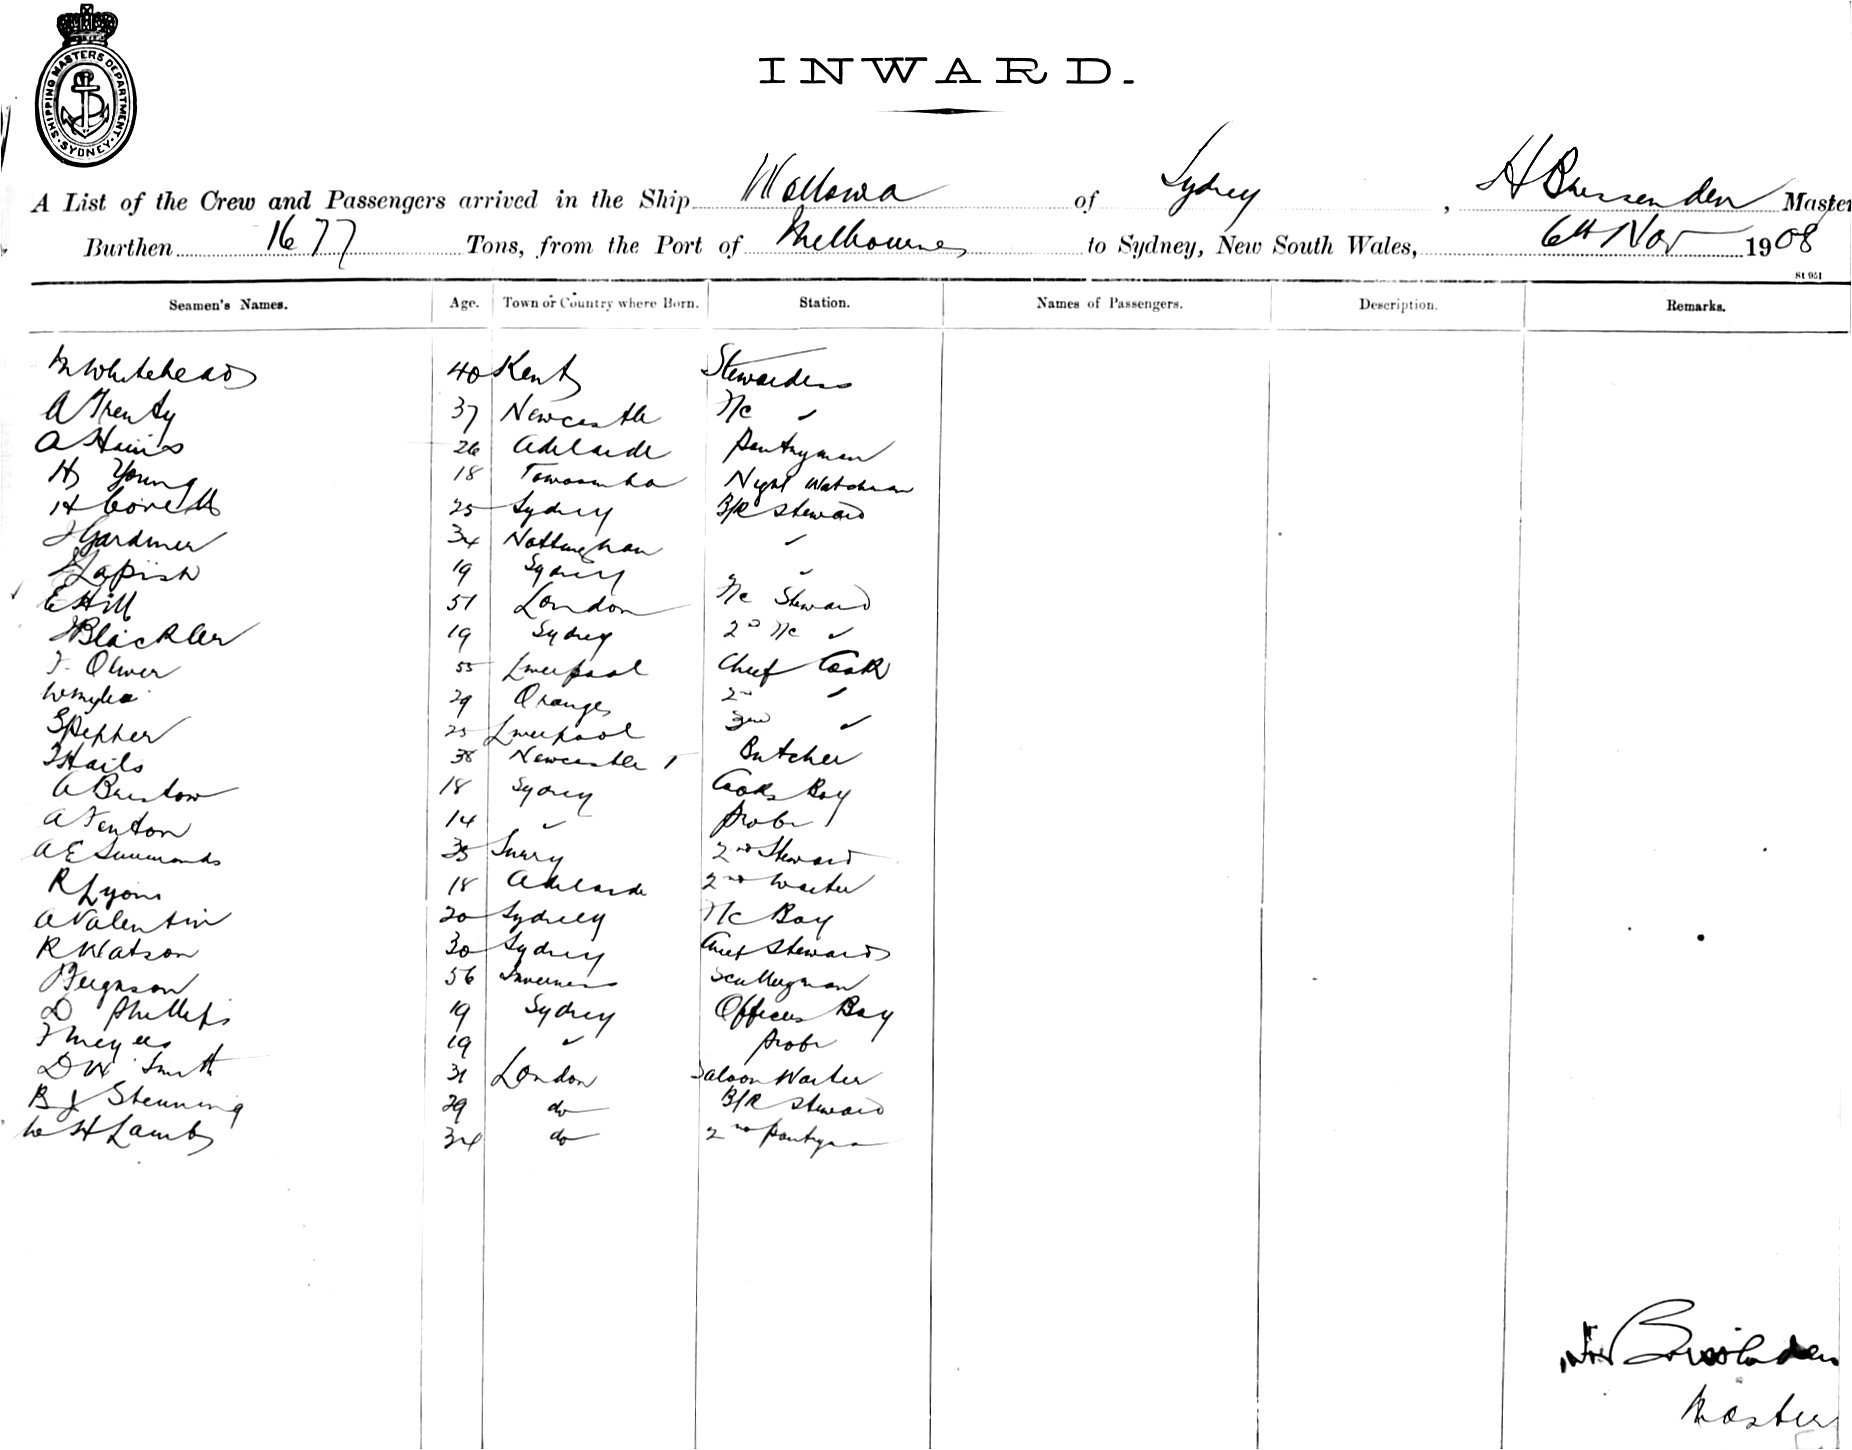 SHIPPING MASTERS DEPARTMENT · SYDNEY ·
INWARD.
A List of the Crew and Passengers arrived in the Ship Wollowa of Sydney, H Brissenden Master
Burthen 1677 Tons, from the Port of Melbourne to Sydney, New South Wales, 6th Nov 1908
St 951
Seamen's Names. Age. Town or Country where Born. Station. Names of Passengers. Description. Remarks.
M Whitehead 40 Kent Stewardess
A Trenty 37 Newcastle F/c "
A Hains 26 Adelaide Pantryman
H Young 18 Towoomba Night Watchman
H Corrett 25 Sydney B/R Steward
J Gardiner 34 Nottingham "
Lapish 19 Sydney "
E Hill 51 London F/c Steward
J Blackler 19 Sydney 2nd F/c "
F. Oliver 55 Liverpool Chief Cook
W Myles 29 Orange 2nd "
S Pepper 25 Liverpool 3rd "
T Hails 38 Newcastle Butcher
A Bristow 18 Sydney Cooks Boy
A Fenton 14 " Probr
A E Simmonds 35 Surry 2nd Steward
R Lyons 18 Adelaide 2nd Waiter
A Valentin 20 Sydney F/c Boy
R Watson 30 Sydney Chief Steward
Ferguson 56 Inverness Sculleryman
D Phillips 19 Sydney Officers Boy
F Meyers 19 " Probr
D W Smith 31 London Saloon Waiter
B J Stenning 29 do B/R Steward
W H Lamb 34 do 2nd Pantryman
Brissenden
Master